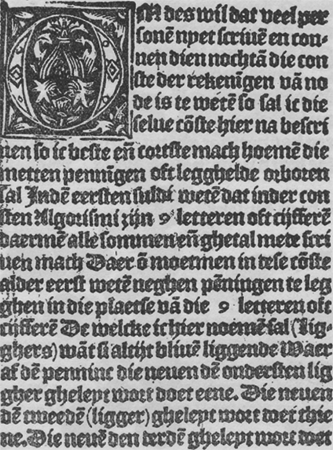 OM des wil dat veel per
sonē npet scriuē en con
nen dien nochtā die con
ste der rekenīgen vā no
de is te wetē so sal ic die
selue cōste hier na bescri
uen so ic beste eñ cortste mach hoemē die
metten penningen oft legghelde orboren
sal Indē eersten suldi wetē dat inder con
sten Algorismi zijn 9 letteren oft cijfferē
daermē alle sommen eñ ghetal mede scri
uen mach Daer ō moetmen in dese cōste
alder eerst wetē neghen pēningen te leg
ghen in die plaetse vā die 9 letteren oft
cijfferē De welcke ic hier noemē sal (lig-
ghers) wāt si altijt bliuē liggende Waer
af dē penninc die neuen dē ondersten lig
gher ghelept wort doet eene. Die neuen
dē tweedē (ligger) ghelept wort wet thie
ne. Die neuē den derdē ghelept wort doet